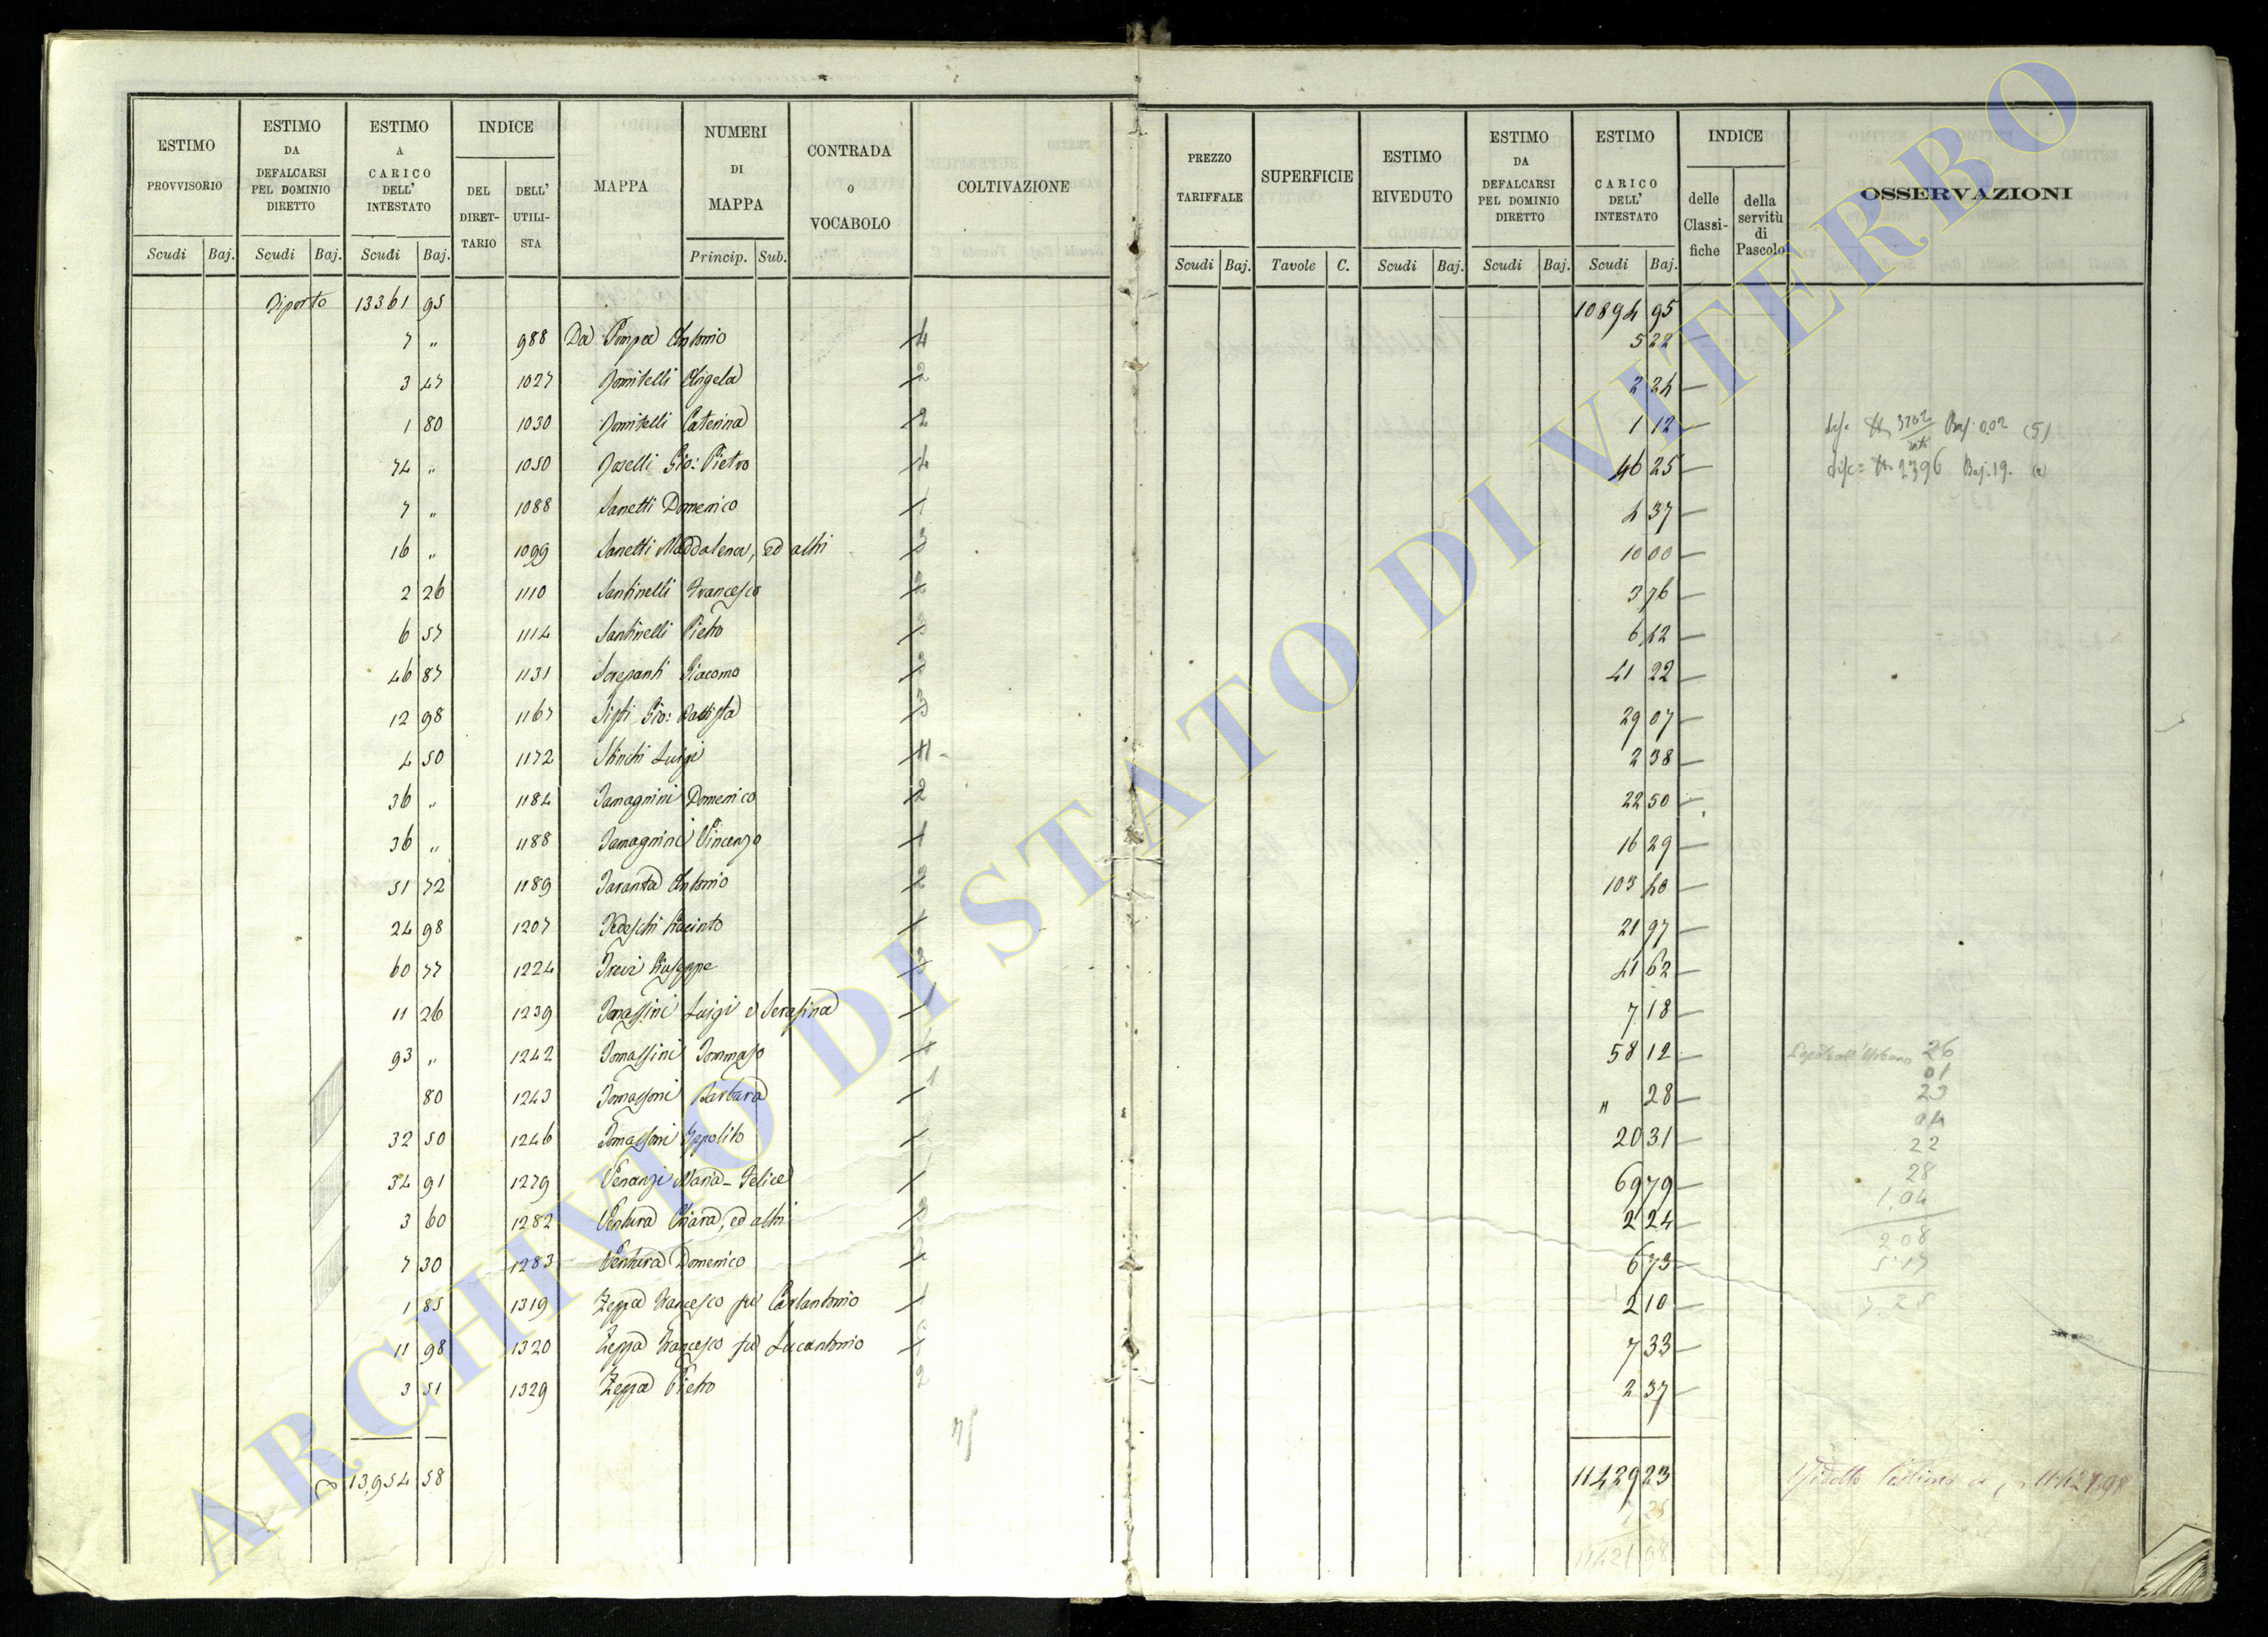 ESTIMO PROVVISORIO
ESTIMO DA DEFALCARSI PEL DOMINIO DIRETTO
ESTIMO A CARICO DELL' INTESTATO
INDICE
DEL DIRET-TARIO
DELL' UTILI-STA
MAPPA
NUMERI DI MAPPA
CONTRADA o VOCABOLO
COLTIVAZIONE
PREZZO TARIFFALE
SUPERFICIE
ESTIMO RIVEDUTO
ESTIMO DA DEFALCARSI PEL DOMINIO DIRETTO
ESTIMO A CARICO DELL' INTESTATO
INDICE
delle Classi-fiche
della servitù di Pascolo
OSSERVAZIONI
Scudi Baj. Scudi Baj. Scudi Baj. Princip. Sub. Scudi Baj. Tavole C. Scudi Baj. Scudi Baj. Scudi Baj.
Riporto 13361 95 10894 95
7 " 988 Da Pompa Antonio 4 5 22
3 47 1027 Romitelli Angela 2 2 24
1 80 1030 Romitelli Caterina 2 1 12
74 " 1050 Roselli Gio: Pietro 4 46 25 2396 Baj. 19.
7 " 1088 Sanetti Domenico 1 4 37
16 " 1099 Sanetti Maddalena, ed altri 3 10 00
2 26 1110 Santinelli Francesco 2 3 76
6 57 1114 Santinelli Pietro 3 6 42
46 87 1131 Screpanti Giacomo 2 41 22
12 98 1167 Sisti Gio: Battista 3 29 07
4 50 1172 Stinchi Luigi 2 38
36 " 1184 Tamagnini Domenico 2 22 50
36 " 1188 Tamagnini Vincenzo 1 16 29
51 72 1189 Taranta Antonio 2 103 40
24 98 1207 Tedeschi Giacinto 1 21 97
60 77 1224 Trevi Giuseppe 3 41 62
11 26 1239 Tomassini Luigi e Serafina 1 7 18
93 " 1242 Tomassini Tommaso 1 58 12 26
01
80 1243 Tomassoni Barbara 1 " 28 23
04
32 50 1246 Tomassoni Ippolito 1 20 31 22
34 91 1279 Venanzi Maria-Felice 1 69 79 28
1,04
3 60 1282 Ventura Chiara, ed altri 3 2 24
2 08
7 30 1283 Ventura Domenico 6 73 5 17
1 85 1319 Zeppa Francesco fu Carlantonio 1 2 10 7.25
11 98 1320 Zeppa Francesco fu Lucantonio 1 7 33
3 51 1329 Zeppa Pietro 2 2 37
13,954 58 11429 23
ARCHIVIO DI STATO DI VITERBO